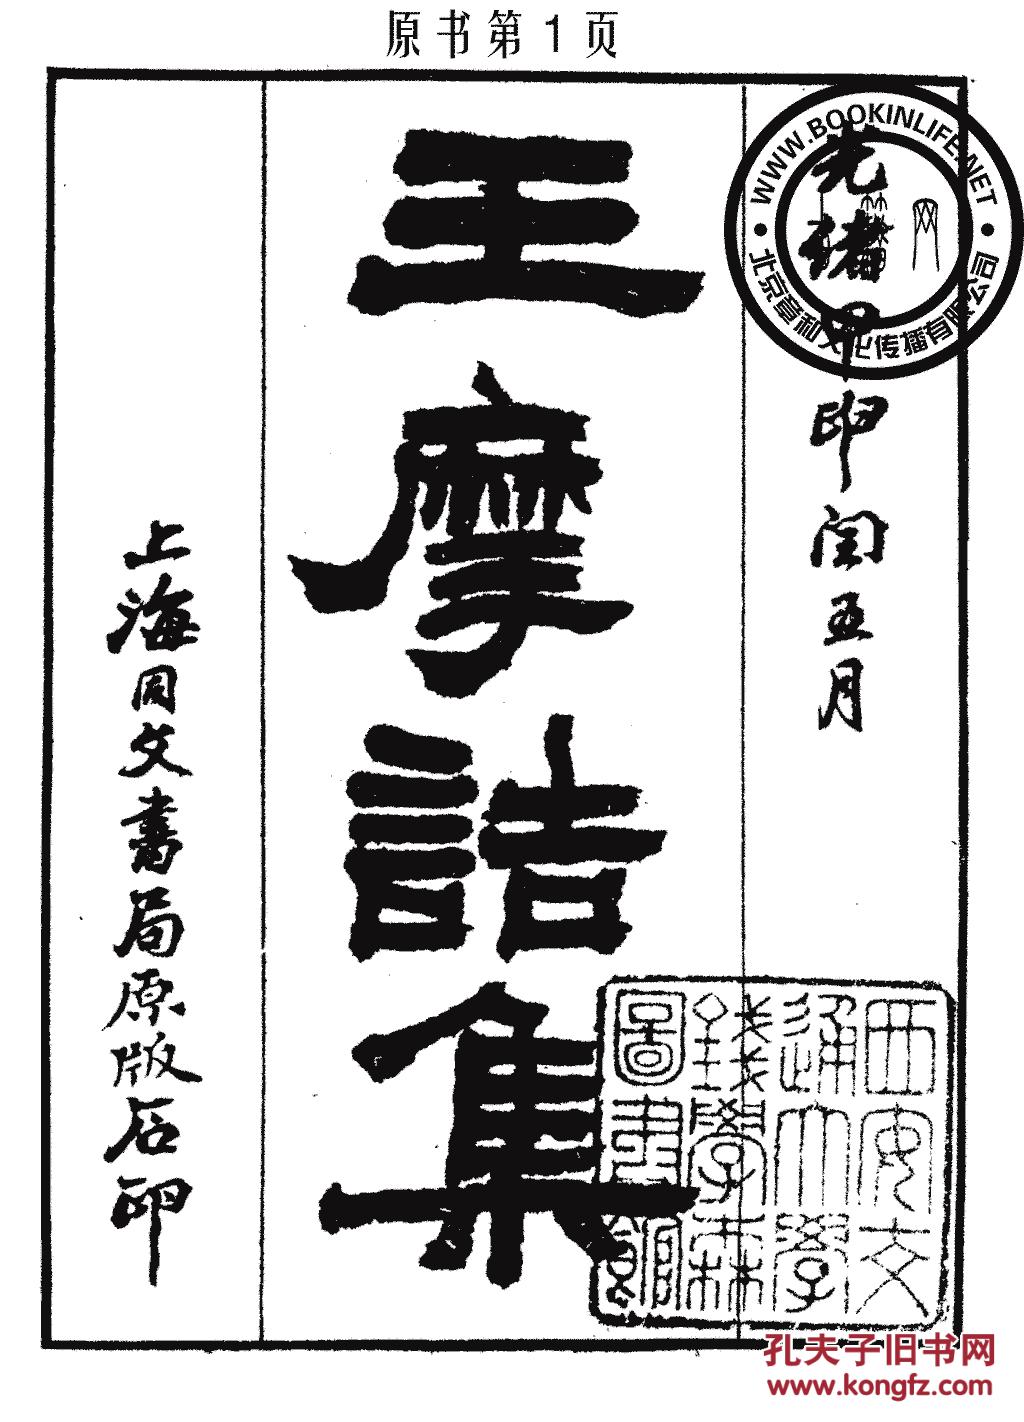 原书第1页
WWW.BOOKINLIFE.NET
北京章和文化传播有限公司
光緒甲申閏五月
王摩詰集
上海同文書局原版石印
西安交
通大學
錢學森
圖書館
孔夫子旧书网
www.kongfz.com